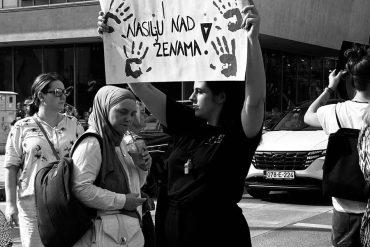 I
NASILJU NAD
ŽENAMA!
078-E-224